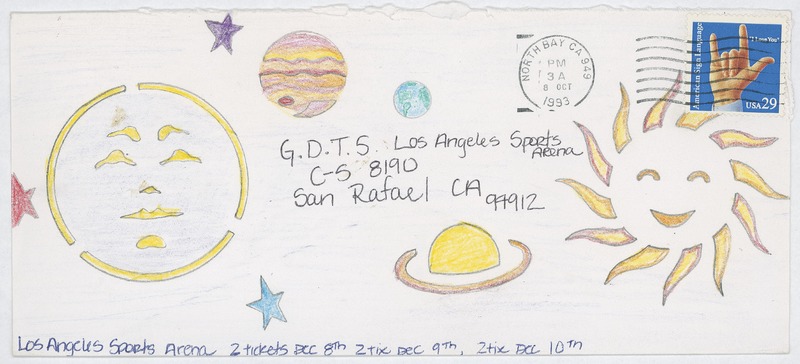 NORTH BAY CA 949
PM
3A
8 OCT
1993
American Sign Language
"I Love You"
USA 29
G.D.T.S. Los Angeles Sports
Arena
C-S 8190
San Rafael CA
94912
Los Angeles Sports Arena 2 tickets DEC 8th 2 tix DEC 9th, 2 tix DEC 10th